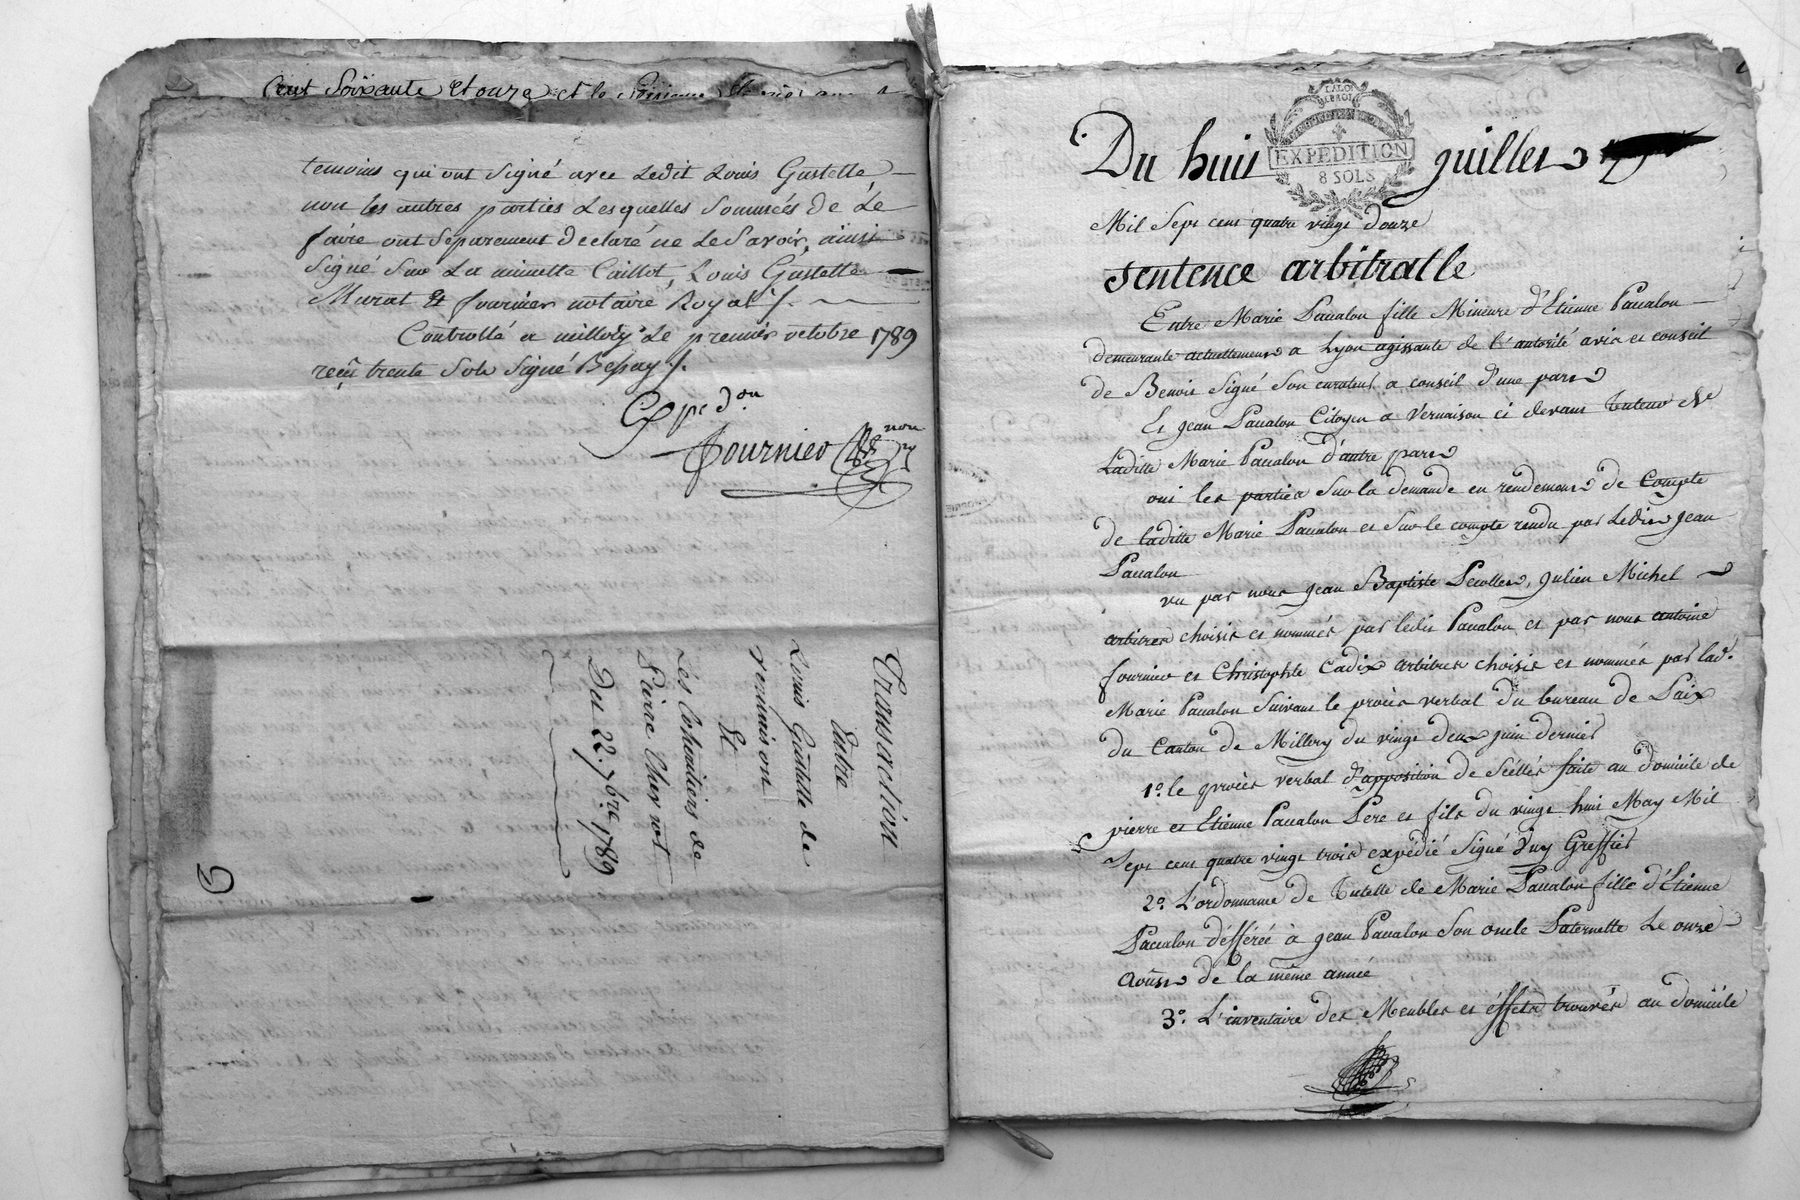 Cent Soixante et onze et le
temoins qui ont signé avec Ledit Louis Gustelle
non les autres parties Lesquelles Sommeés de Le
faire ont Separement declaré ne Le Savoir, ainsi
Signé Sur La minutte Caillot, Louis Gustelle
Murat et fournier notaire Royal /.
Controllé a millery Le premier octobre 1789
reçu trente Sols Signé Bessay /.
Exp.on
Fournier
Transaction
Entre
Louis Gustelle de
vernaison
Et
Les Cohéritiers de
Pierre Chervot
Du 22. 7bre 1789
LA LOI
LE ROI
EXPEDITION
8 SOLS
Du huit juillet
Mil Sept cent quatre vingt douze
Sentence arbitralle
Entre Marie Pacalon fille Mineure d'Etienne Pacalon
demeurante actuellement a Lyon agissante de l'autorité avis et conseil
de Benoit Signé Son curateur a conseil d'une part
Et jean Pacalon Citoyen a Vernaison ci devant tuteur de
Laditte Marie Pacalon d'autre part
oui les parties Sur la demande en rendement de Compte
de laditte Marie Pacalon et Sur le compte rendu par Ledit jean
Pacalon
vu par nous jean Baptiste Julien Michel
arbitres choisis et nommés par ledit Pacalon et par nous antoine
fournier et Christophle Cadix arbitres choisis et nommés par lad.
Marie Pacalon Suivant le procès verbal du bureau de Paix
du Canton de Millery du vingt deux juin dernier
1.º le procès verbal d'apposition de Scéllés faite au domicile de
pierre et Etienne Pacalon Pere et fils du vingt huit May Mil
Sept cent quatre vingt trois expédié Signé Greffier
2º. L'ordonnance de Tutelle de Marie Pacalon fille d'Etienne
Pacalon défférée à jean Pacalon Son oncle Paternelle Le onze
Aoust de la même année
3º. L'inventaire des Meubles et éffets trouvés au domicile